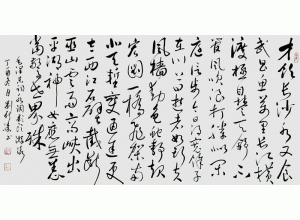 才饮长沙水又食
武昌鱼萬里长江横
渡极目楚天舒不
管风吹浪打胜似闲
庭信步今日得宽余子
在川上曰逝者如斯夫
风樯动龟蛇静起
宏图一桥飞架南
北天堑变通途更
立西江石壁截断
巫山雲雨高峡出
平湖神女应无恙
当惊世界殊
毛泽东词水调歌头游泳
丁酉冬月刘书